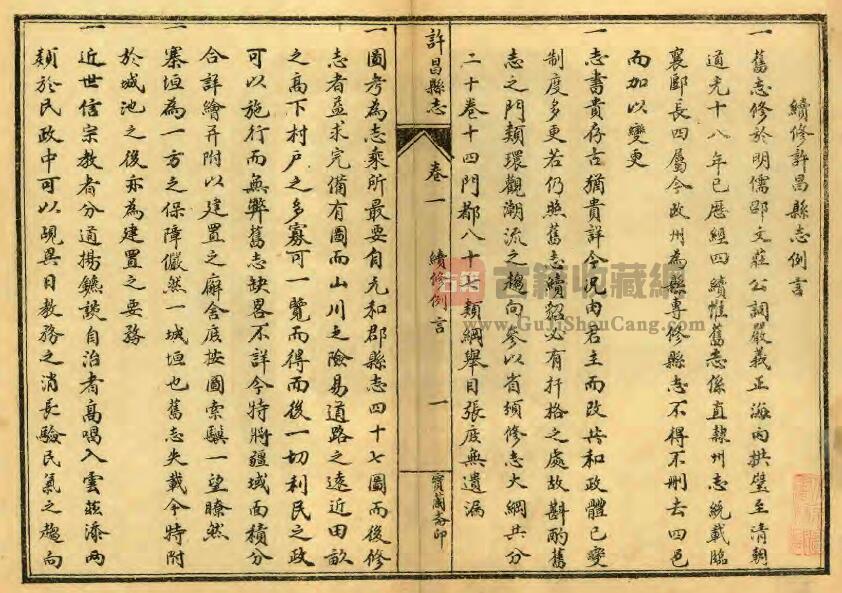 續修許昌縣志例言
一舊志修於明儒邵文莊公調嚴義正海內拱璧至清朝
道光十八年已歷經四續惟舊志係直隸州志統載臨
襄郾長四屬今改州為縣專修縣志不得不刪去四邑
而加以變更
一志書貴存古猶貴詳今況由君主而改共和政體已變
制度多更若仍照舊志續貂必有扞格之處故斟酌舊
志之門類環觀潮流之趨向參以省頒修志大綱共分
二十卷十四門都八十七類綱舉目張庶無遺漏
許昌縣志
卷一
續修例言
一
寶蘭齋印
一圖考為志乘所最要自元和郡縣志四十七圖而後修
志者益求完備有圖而山川之險易道路之遠近田畝
之高下村戶之多寡可一覽而得而後一切利民之政
可以施行而無弊舊志缺畧不詳今特將疆域面積分
合詳繪并附以建置之廨舍庶按圖索驥一望瞭然
一寨垣為一方之保障儼然一城垣也舊志失載今特附
於城池之後亦為建置之要務
一近世信宗教者分道揚鑣談自治者高唱入雲茲添兩
類於民政中可以覘異日教務之消長驗民氣之趨向
古籍
古籍收藏網
www.GuJiShouCang.com